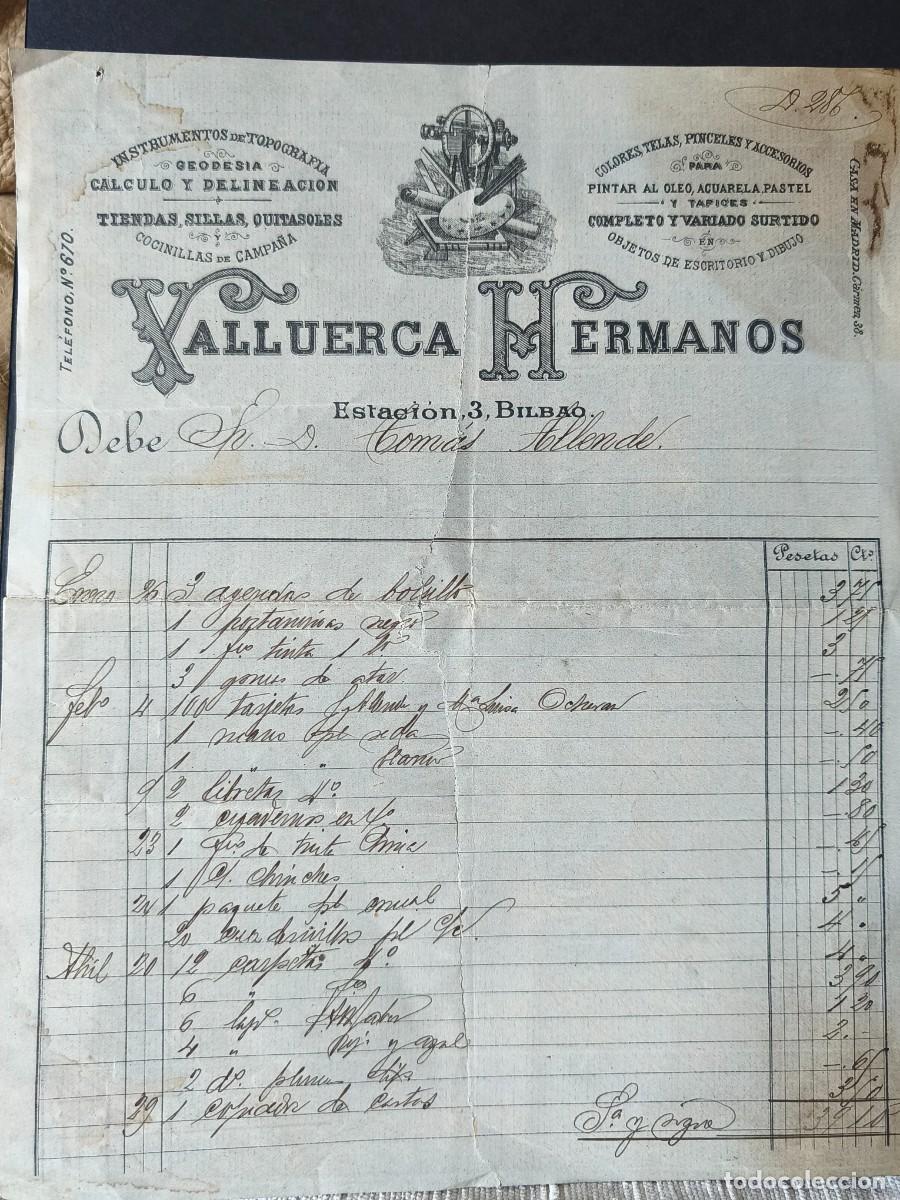 D. 286
INSTRUMENTOS DE TOPOGRAFIA
GEODESIA
CALCULO Y DELINEACION
TIENDAS, SILLAS, QUITASOLES
Y
COCINILLAS DE CAMPAÑA
COLORES, TELAS, PINCELES Y ACCESORIOS
PARA
PINTAR AL OLEO, ACUARELA, PASTEL
Y TAPICES
COMPLETO Y VARIADO SURTIDO
EN
OBJETOS DE ESCRITORIO Y DIBUJO
TELÉFONO, Nº 670.
CASA EN MADRID, Cármen, 38.
VALLUERCA HERMANOS
Estación, 3, BILBAO.
Debe Sr. D. Tomás Allende.
Pesetas Cts
Enero 26 3 agendas de bolsillo 3 75
1 portaminas negro 1 25
1 fco tinta 1 3
3 de atar -. 75
Febo 4 100 tarjetas Allende y Mª Luisa Ocharan 2 50
1 mano ppl seda -. 40
1 " " -. 50
9 2 libretas 4º 1 30
2 cuadernos en 4º -. 80
23 1 fco de tinta China -. 65
1 c/. chinches -. 15
24 1 paquete pl 5 "
20 cuadernillos pl 4 "
Abril 20 12 carpetas 4º 4 "
6 " fo 3 90
6 lapz. 1 20
4 " rojo y azul 2. -
2 dª plumas -. 65
29 1 copiador de cartas 3 50
Sª y sigue 39 10
todocoleccion